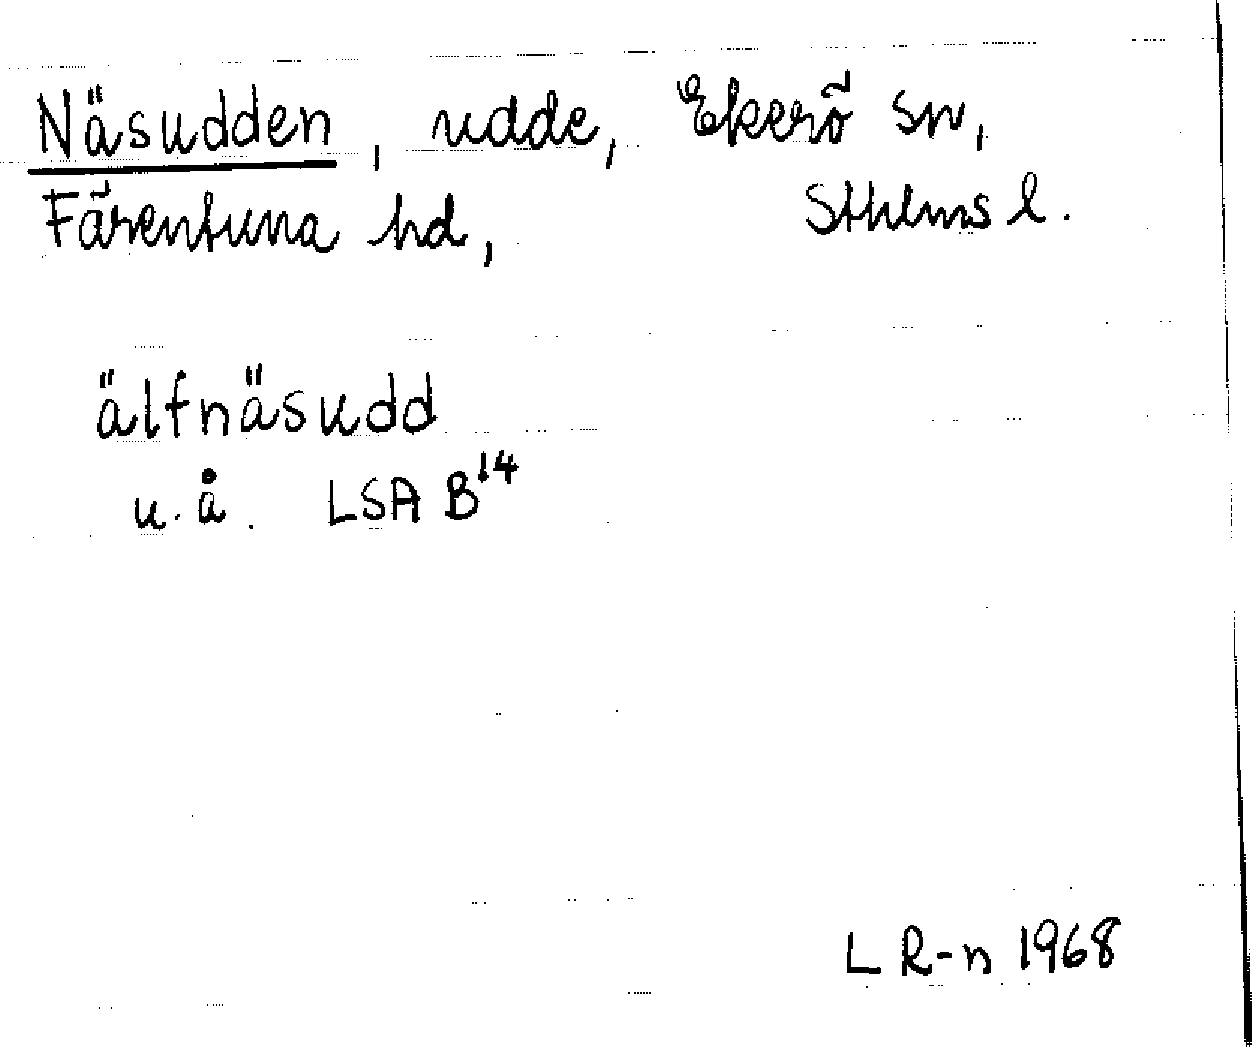 Näsudden, udde, Ekerö sn,
Färentuna hd, Sthlms l.
älfnäsudd
u. å. LSA B 14
L R-n 1968